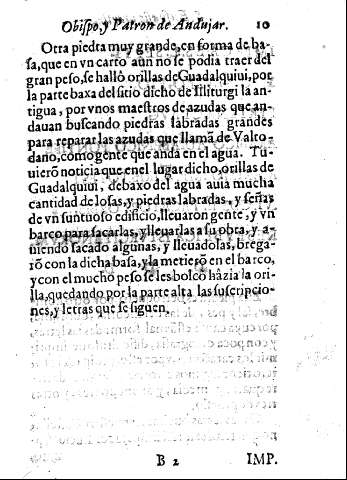 Obispo, y Patron de Andujar. 10
Otra piedra muy grande, en forma de ba-
sa, que en vn carto aun no se podia traer del
gran peso, se hallò orillas de Guadalquiui, por
la parte baxa del sitio dicho de Iliturgi la an-
tigua, por vnos maestros de azudas que an-
dauan buscando piedras labradas grandes
para reparar las azudas que llamã de Valto-
dano, como gente que anda en el agua. Tu-
uierõ noticia que en el lugar dicho, orillas de
Guadalquiui, debaxo del agua auia mucha
cantidad de losas, y piedras labradas, y señas
de vn suntuoso edificio, lleuaron gente, y vn
barco para sacarlas, y lleuarlas a su obra, y a-
uiendo sacado algunas, y lleuadolas, brega-
rõ con la dicha basa, y la metierõ en el barco,
y con el mucho peso se les bolcò hâzia la ori-
lla, quedando por la parte alta las suscripcio-
nes, y letras que se siguen.
B 2 IMP.